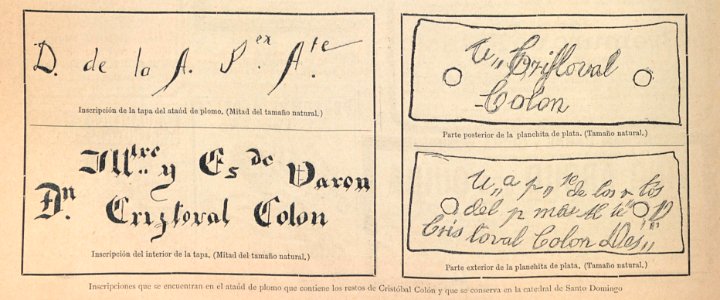 D. de la A. Per. Ate.
Inscripción de la tapa del ataúd de plomo. (Mitad del tamaño natural.)
Illtre. y Es do Varon
Dn. Criztoval Colon
Inscripción del interior de la tapa. (Mitad del tamaño natural.)
U,, Cristoval
Colon
Parte posterior de la planchita de plata. (Tamaño natural.)
U,, a p,, te de los r tos
del p mer Al te D
Cris toval Colon Des,,
Parte exterior de la planchita de plata. (Tamaño natural.)
Inscripciones que se encuentran en el ataúd de plomo que contiene los restos de Cristóbal Colón y que se conserva en la catedral de Santo Domingo